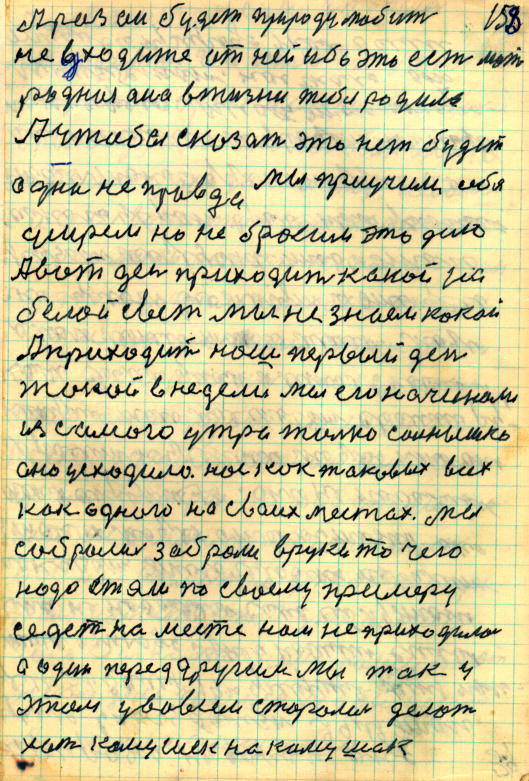 А раз он будет природу любит 158
не входите от ней ибо это ест мат
родная она в жизни тебя родила
А чтобы сказат это нет будет
одна не правда мы приучим себя
умрем но не бросим это дело
А вот ден приходит какой на
белой свет мы не знаем какой
А приходит наш первый ден
такой в недели мы его начинаем
из самого утра только солнышко
оно усходило. нас как таковых всех
как одного на своих местах. мы
собрали забрали в руки то чего
надо стали по своему примеру
седет на месте нам не приходилос
а один перед другим мы так у
этом увовсем старалис делат
хот камушек на камушак